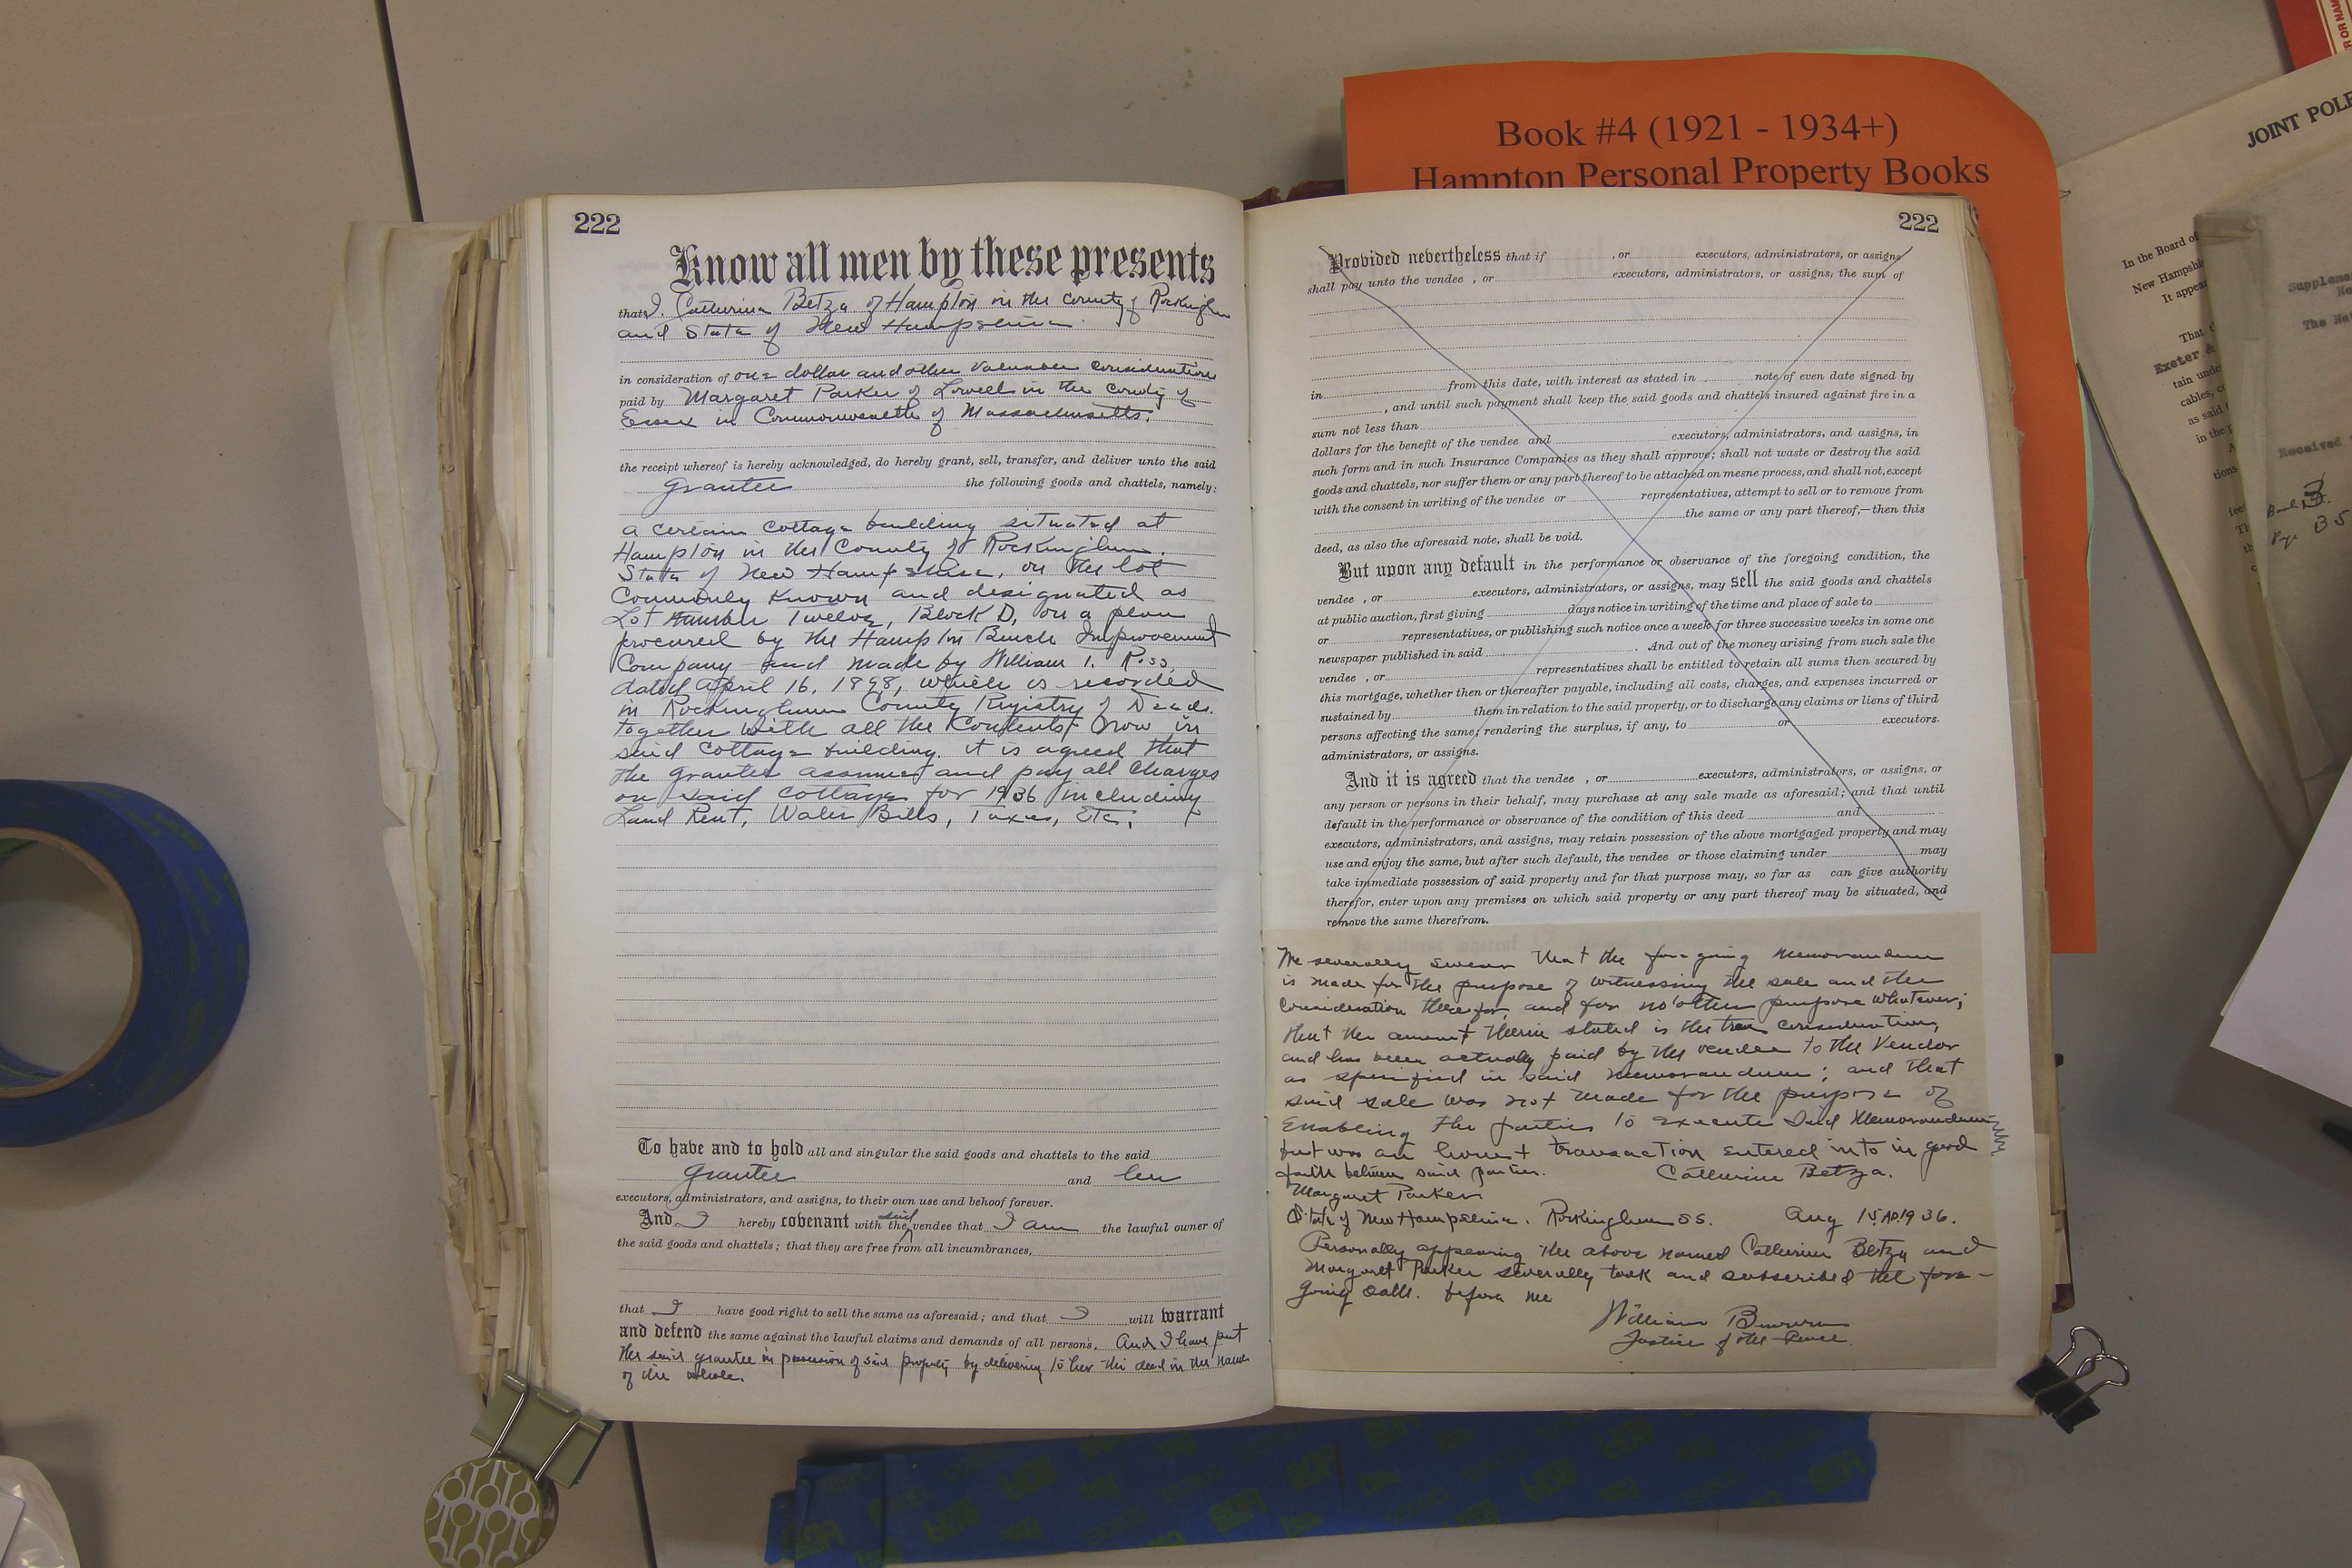 Book #4 (1921 - 1934+)
Hampton Personal Property Books
222
Know all men by these presents
that I, Catherine Betza of Hampton in the County of Rockingham
and State of New Hampshire
in consideration of one dollar and other valuable considerations
paid by Margaret Parker of Lowell in the County of
Essex in Commonwealth of Massachusetts.
the receipt whereof is hereby acknowledged, do hereby grant, sell, transfer, and deliver unto the said
grantee the following goods and chattels, namely:
a certain cottage building situated at
Hampton in the County of Rockingham.
State of New Hampshire, on the lot
Commonly Known and designated as
Lot Number Twelve, Block D, on a plan
procured by the Hampton Beach Improvement
Company and made by William T. Ross,
dated April 16, 1898, which is recorded
in Rockingham County Registry of Deeds.
together with all the Contents now in
said Cottage building. it is agreed that
the grantee assume and pay all Charges
on said cottage for 1936 including
Land Rent, Water Bills, Taxes, Etc.
To have and to hold all and singular the said goods and chattels to the said
grantee and her
executors, administrators, and assigns, to their own use and behoof forever.
And I hereby covenant with the said vendee that I am the lawful owner of
the said goods and chattels; that they are free from all incumbrances,
that I have good right to sell the same as aforesaid; and that I will warrant
and defend the same against the lawful claims and demands of all persons. And I have put
the said grantee in possession of said property by delivering to her this deed in the name
of the whole.
222
Provided nevertheless that if , or executors, administrators, or assigns
shall pay unto the vendee , or executors, administrators, or assigns, the sum of
in from this date, with interest as stated in note of even date signed by
, and until such payment shall keep the said goods and chattels insured against fire in a
sum not less than
dollars for the benefit of the vendee and executors, administrators, and assigns, in
such form and in such Insurance Companies as they shall approve; shall not waste or destroy the said
goods and chattels, nor suffer them or any part thereof to be attached on mesne process, and shall not, except
with the consent in writing of the vendee or representatives, attempt to sell or to remove from
the same or any part thereof,—then this
deed, as also the aforesaid note, shall be void.
But upon any default in the performance or observance of the foregoing condition, the
vendee , or executors, administrators, or assigns, may sell the said goods and chattels
at public auction, first giving days notice in writing of the time and place of sale to
or representatives, or publishing such notice once a week for three successive weeks in some one
newspaper published in said . And out of the money arising from such sale the
vendee , or representatives shall be entitled to retain all sums then secured by
this mortgage, whether then or thereafter payable, including all costs, charges, and expenses incurred or
sustained by them in relation to the said property, or to discharge any claims or liens of third
persons affecting the same; rendering the surplus, if any, to or executors.
administrators, or assigns.
And it is agreed that the vendee , or executors, administrators, or assigns, or
any person or persons in their behalf, may purchase at any sale made as aforesaid; and that until
default in the performance or observance of the condition of this deed and
executors, administrators, and assigns, may retain possession of the above mortgaged property and may
use and enjoy the same, but after such default, the vendee or those claiming under may
take immediate possession of said property and for that purpose may, so far as can give authority
therefor, enter upon any premises on which said property or any part thereof may be situated, and
remove the same therefrom.
We severally swear that the foregoing memorandum
is made for the purpose of witnessing the sale and the
consideration therefor, and for no other purpose whatever;
that the amount therein stated is the true consideration,
and has been actually paid by the vendee to the Vendor
as specified in said memorandum; and that
said sale was not made for the purpose of
Enabling the parties to execute said Memorandum
but was an honest transaction entered into in good
faith between said parties. Catherine Betza.
Margaret Parker
State of New Hampshire. Rockingham SS. Aug 15 AD. 1936.
Personally appearing the above named Catherine Betza and
Margaret Parker severally took and subscribed the fore-
going oath. before me
William
Justice of the Peace.
JOINT POLE
In the Board of
New Hampshi
It appear
That t
Exeter &
tain unde
cables, co
as said
in the p
tions
Supplem
The Na
Received
Book 3
Page 35
OR NAM